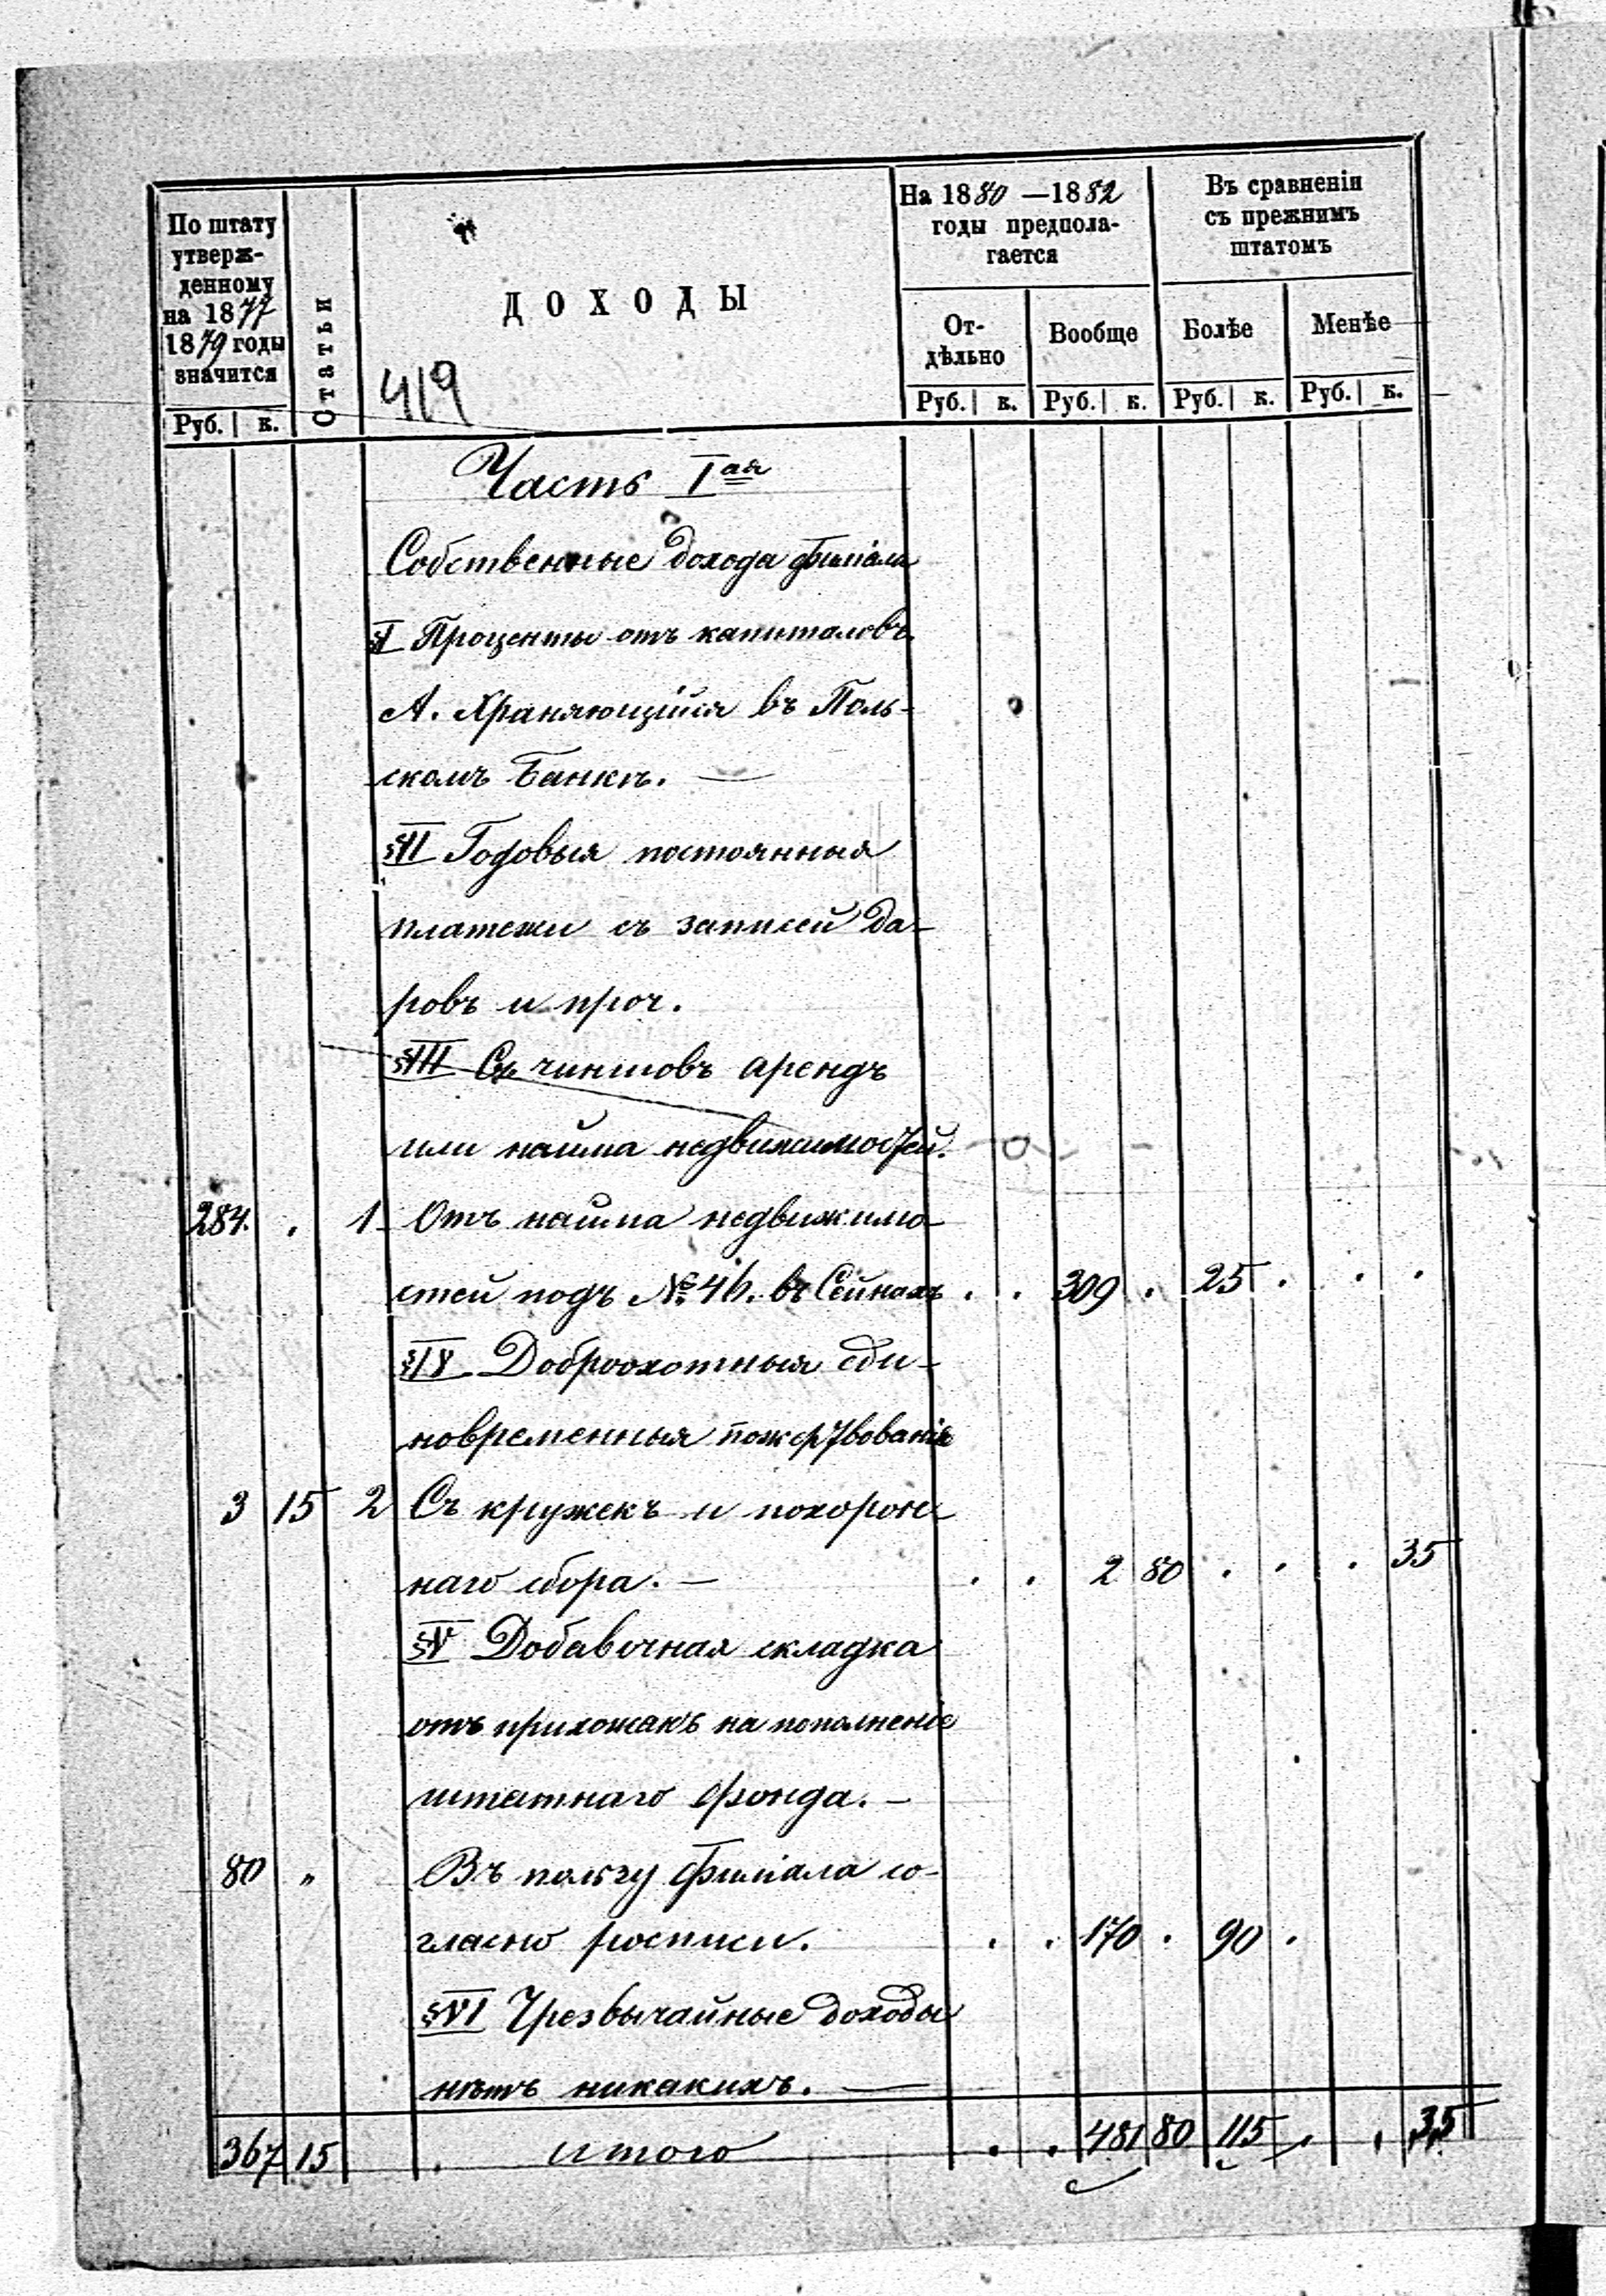 По штату
утверж-
денному
на 1877
1879 годы
значится
Руб. к.
Статьи
ДОХОДЫ
419
На 1880 —1882
годы предпола-
гается
От-
дѣльно
Вообще
Руб. к. Руб. к.
Въ сравненіи
съ прежнимъ
штатомъ
Болѣе
Менѣе
Руб. к. Руб. к.
Часть Iая
Собственные дохода филіала
§I Проценты отъ капиталовъ.
А. Храняющійся въ Поль-
скомъ Банкѣ. —
§II Годовыя постоянная
платежи съ записей да-
ровъ и проч.
§III Съ чиншовъ арендъ
или найма недвижимостей.
284. . 1 Отъ найма недвижимо-
стей подъ № 46. въ Сейнахъ . . 309 . 25 . . .
§IV Доброохотныя еди-
новременныя пожертвованія
3 15 2 Съ кружекъ и похорон-
наго сбора. — . . 2 80 . . . 35
§V Добавочная складка
отъ прихожанъ на пополненіе
штатнаго фонда. —
80 „ Въ пользу филіала со-
гласно росписи. . . 170 . 90 .
§VI Чрезвычайные доходы
нѣтъ никакихъ. —
367 15 . итого . . 481 80 115 . . 35